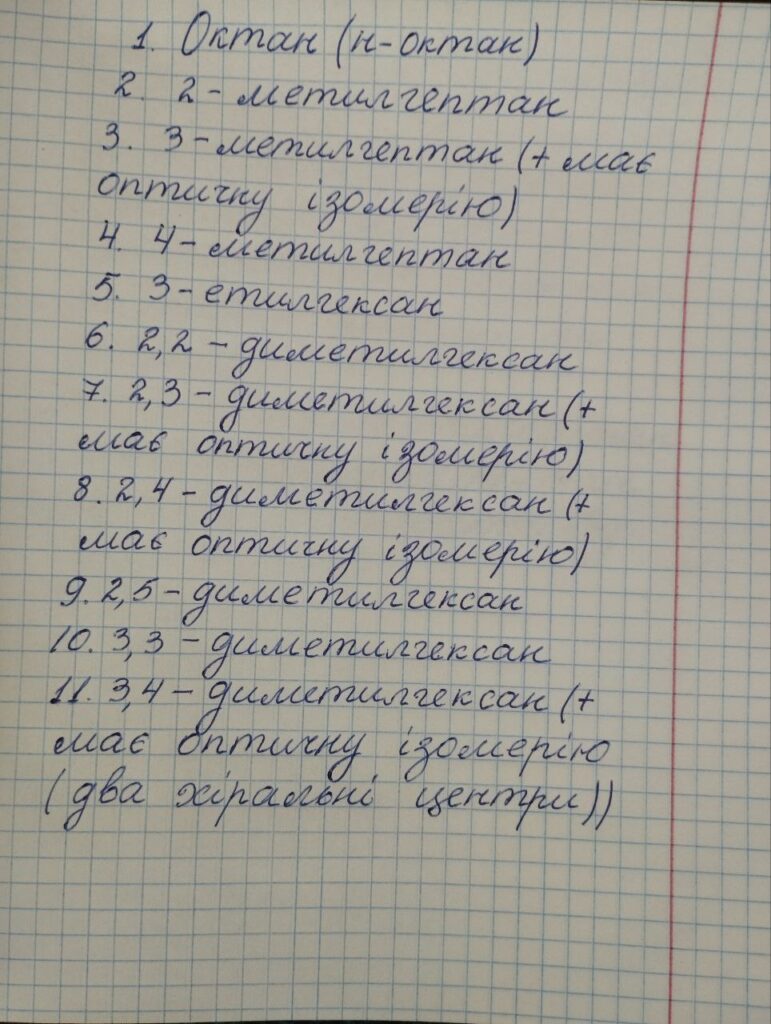 1. Октан (н-октан)
2. 2-метилгептан
3. 3-метилгептан (+ має
оптичну ізомерію)
4. 4-метилгептан
5. 3-етилгексан
6. 2,2-диметилгексан
7. 2,3-диметилгексан (+
має оптичну ізомерію)
8. 2,4-диметилгексан (+
має оптичну ізомерію)
9. 2,5-диметилгексан
10. 3,3-диметилгексан
11. 3,4-диметилгексан (+
має оптичну ізомерію
(два хіральні центри))